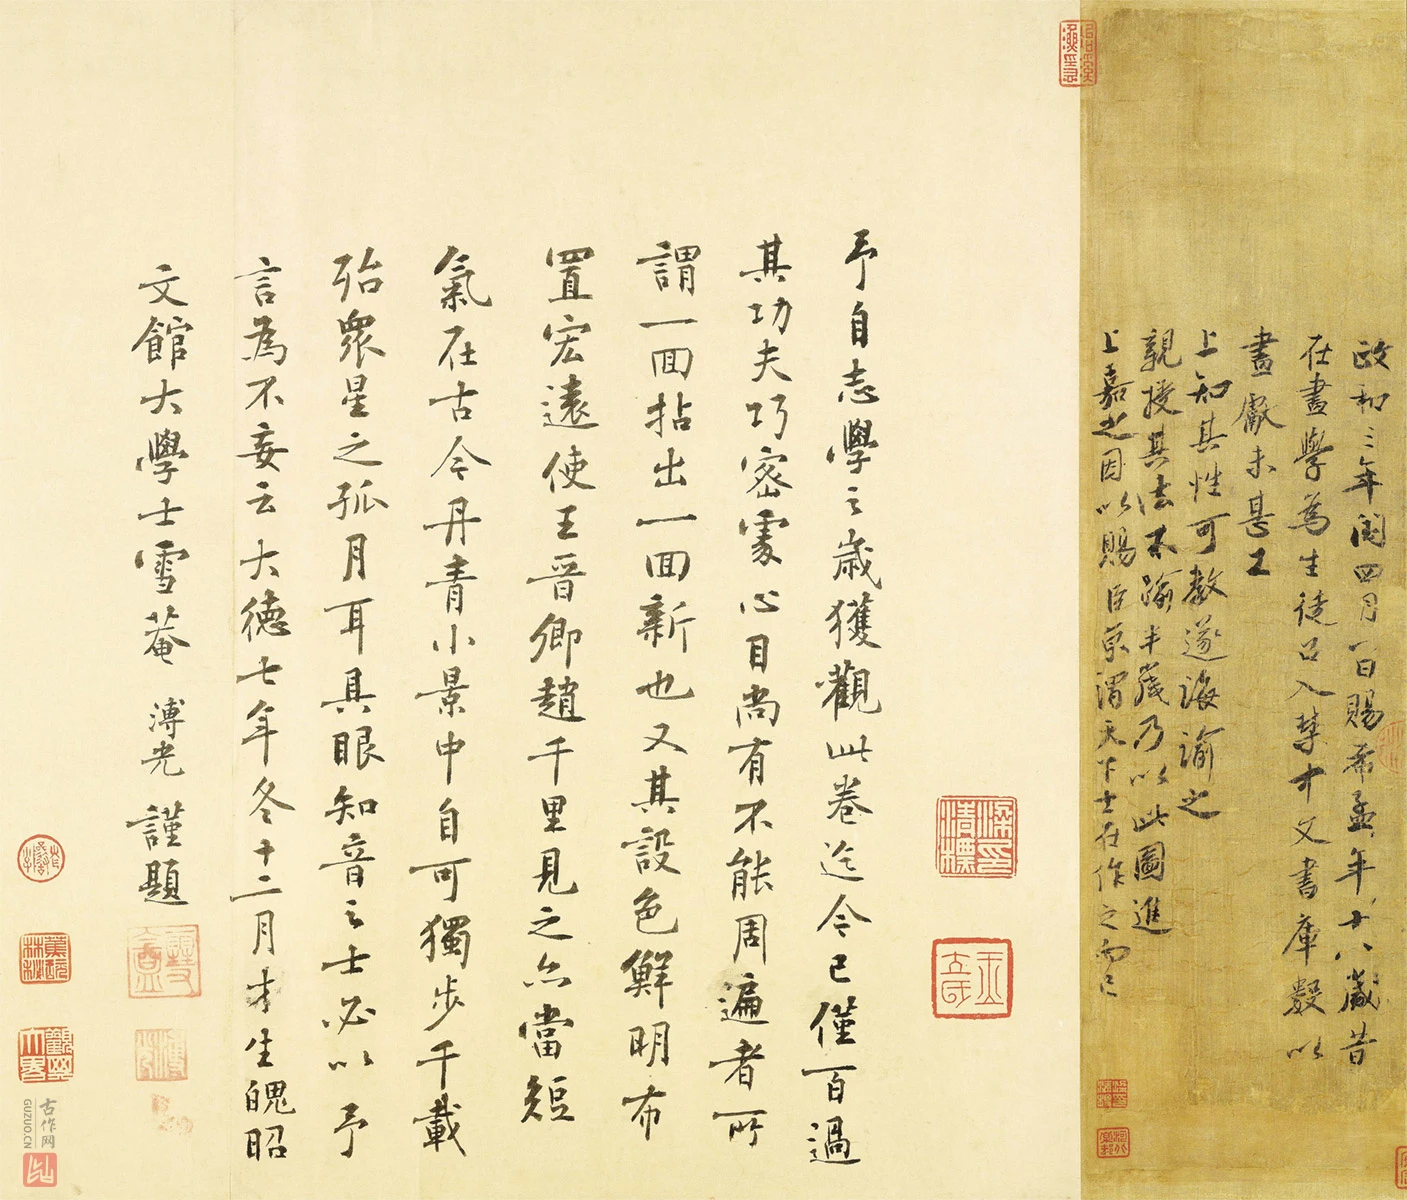 政和三年閏四月一日賜希孟年十八歲昔
在畫學為生徒召入禁中文書庫數以
畫獻未甚工
上知其性可教遂誨諭之
親授其法不踰半歲乃以此圖進
上嘉之因以賜臣京謂天下士在作之而已
予自志學之歲獲觀此卷迄今已僅百過
其功夫巧密處心目尚有不能周遍者所
謂一回拈出一回新也又其設色鮮明布
置宏遠使王晉卿趙千里見之亦當短
氣在古今丹青小景中自可獨步千載
殆眾星之孤月耳具眼知音之士必以予
言為不妄云大德七年冬十二月才生魄昭
文館大學士雪菴溥光謹題
古作网
GUZUO.CN